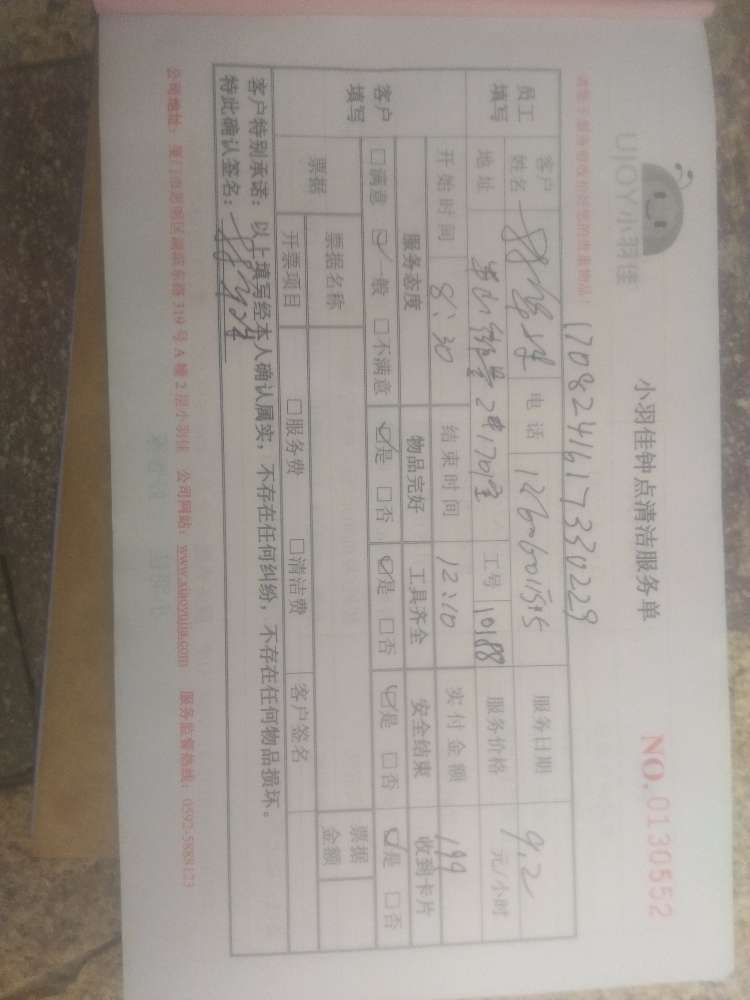 UJOY小羽佳
小羽佳钟点清洁服务单
NO.0130552
1708241617330229
员工填写 客户姓名 电话 服务日期 9.2
地址 2#1701室 工号 10188 服务价格 元/小时
开始时间 8:30 结束时间 12:10 实付金额 199
客户填写 服务态度 物品完好 工具齐全 安全结束 收到卡片
□满意 ☑一般 □不满意 ☑是 □否 ☑是 □否 ☑是 □否 ☑是 □否
票据 票据名称 票据金额
开票项目 □服务费 □清洁费 客户签名
客户特别承诺：以上填写经本人确认属实，不存在任何纠纷，不存在任何物品损坏。
特此确认签名：
公司地址：厦门市思明区湖滨东路319号A幢2层小羽佳 公司网站：www.xiaoyujia.com 服务监督热线：0592-5889123